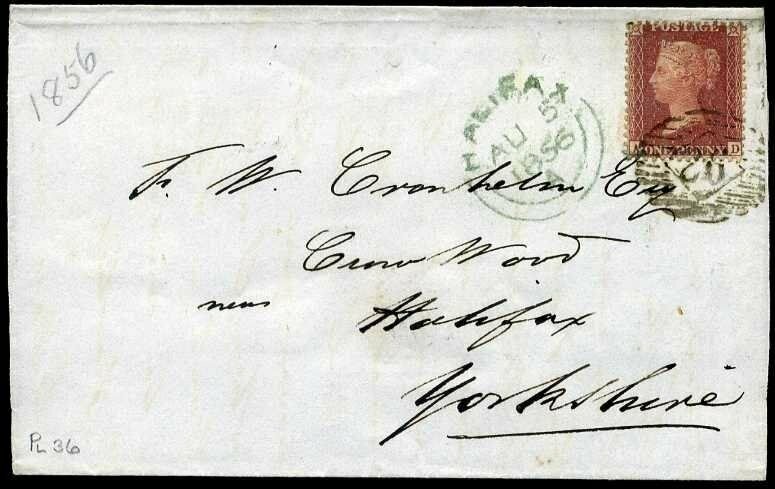 1856
POSTAGE
ONE PENNY
D
HALIFAX
AU 5
1856
A
F. W. Cronhelm Esq
Crow Wood
near Halifax
Yorkshire
PL 36